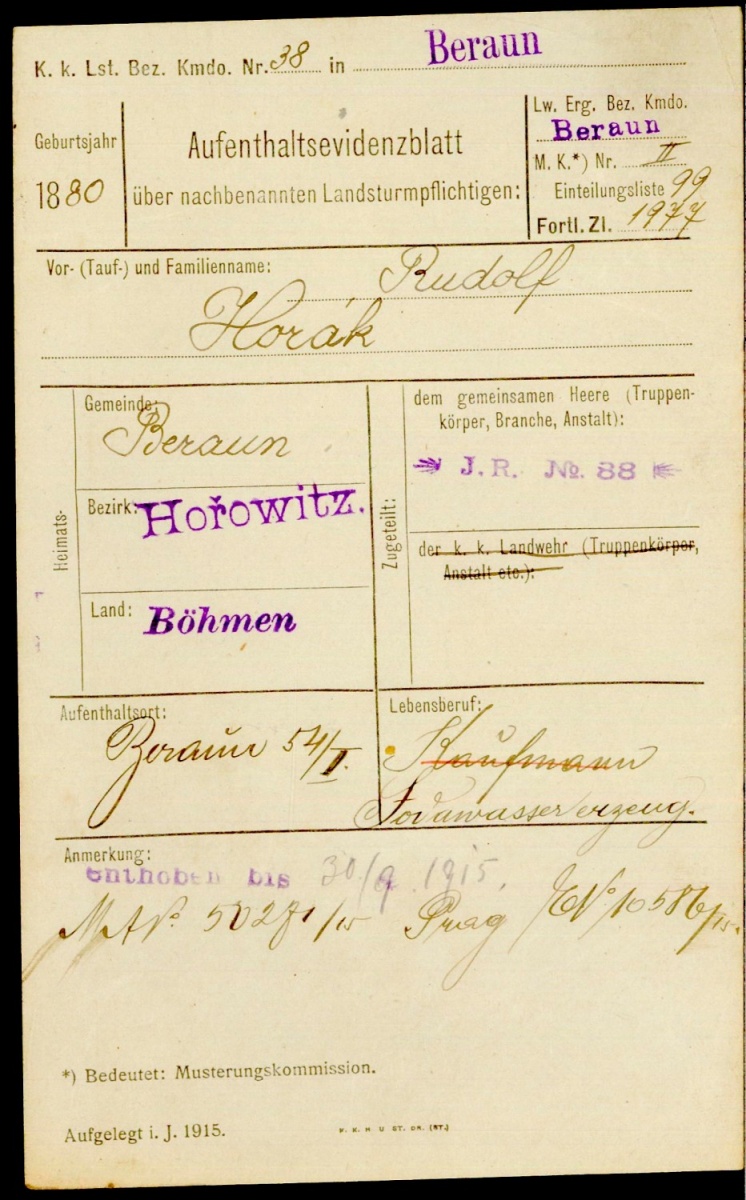 K. k. Lst. Bez. Kmdo. Nr. 38 in Beraun
Geburtsjahr
1880
Aufenthaltsevidenzblatt
über nachbenannten Landsturmpflichtigen:
Lw. Erg. Bez. Kmdo.
Beraun
M. K.*) Nr. II
Einteilungsliste 99
Fortl. Zl. 1977
Vor- (Tauf-) und Familienname: Rudolf
Horák
Heimats-
Gemeinde:
Beraun
Bezirk: Hořowitz.
Land: Böhmen
Zugeteilt:
dem gemeinsamen Heere (Truppen-
körper, Branche, Anstalt):
J. R. No. 88
der k. k. Landwehr (Truppenkörper,
Anstalt etc.):
Aufenthaltsort:
Beraun 54/II.
Lebensberuf:
Kaufmann
Sodawassererzeug.
Anmerkung:
enthoben bis 30/9 1915.
Prag
*) Bedeutet: Musterungskommission.
Aufgelegt i. J. 1915.
K. K. H. U ST. DR. (ST.)